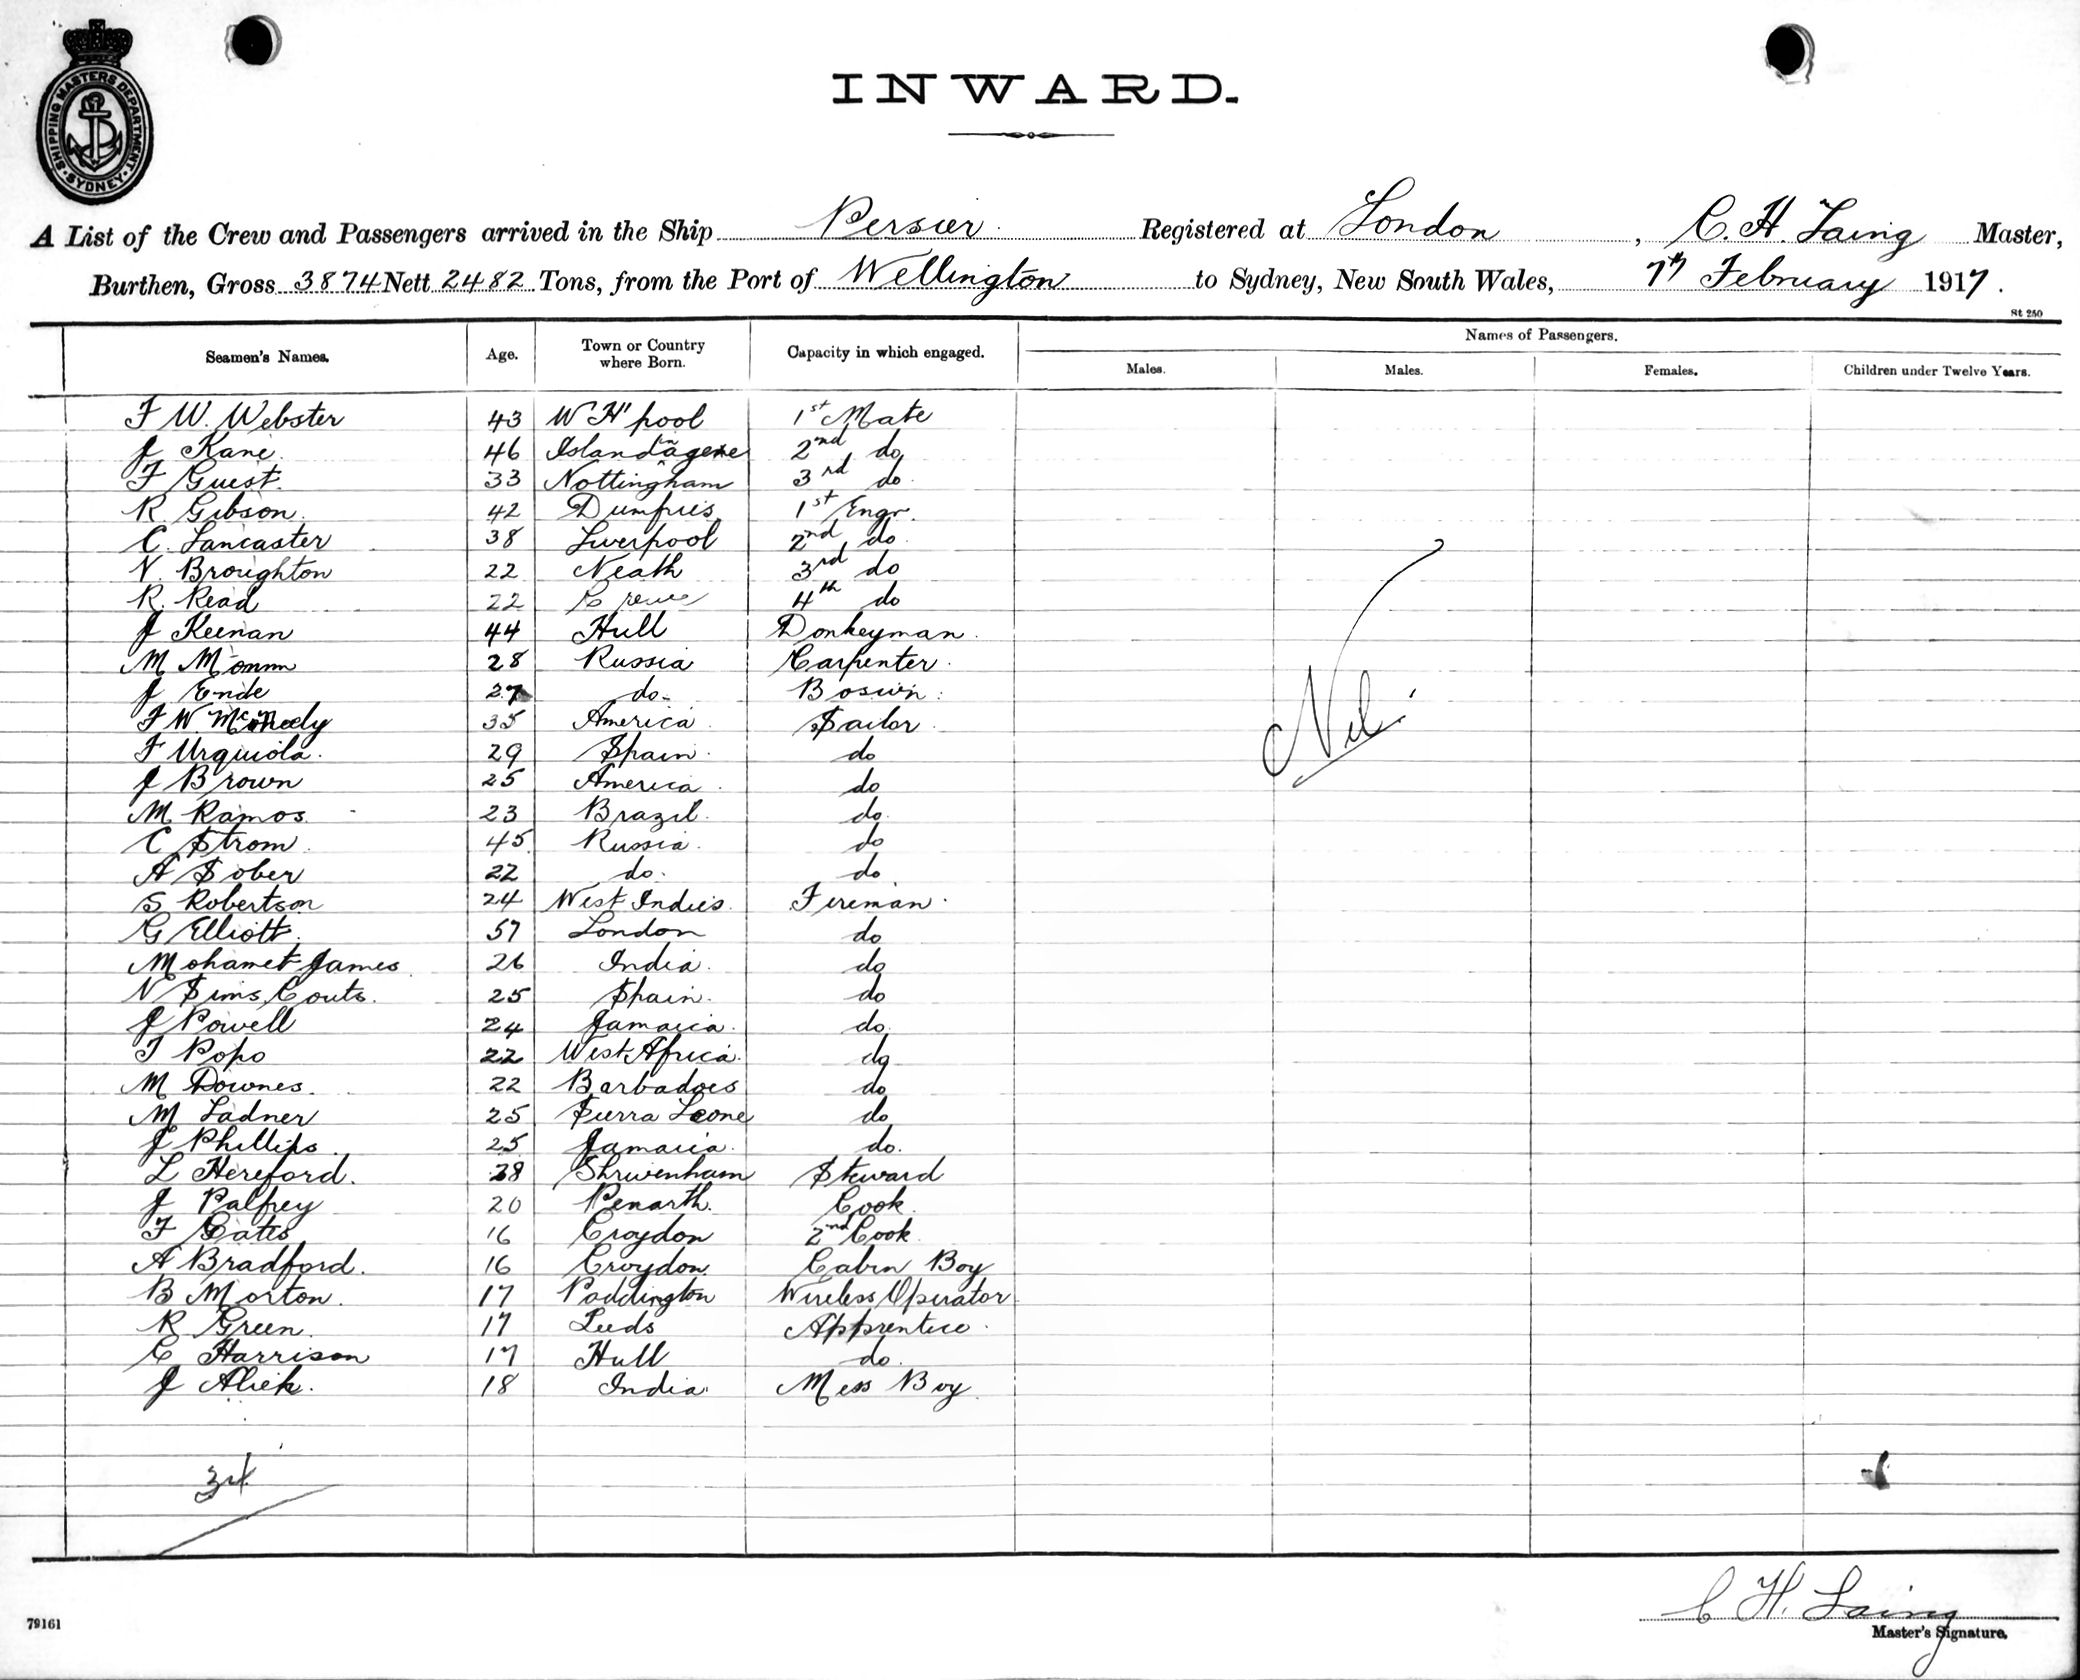 SHIPPING MASTERS DEPARTMENT
SYDNEY
INWARD.
A List of the Crew and Passengers arrived in the Ship Persier Registered at London, C. H. Laing Master,
Burthen, Gross 3874 Nett 2482 Tons, from the Port of Wellington to Sydney, New South Wales, 7th February 1917.
St 250
Seamen's Names. Age. Town or Country where Born. Capacity in which engaged. Names of Passengers.
Males. Males. Females. Children under Twelve Years.
F W. Webster 43 W H'pool 1st Mate
J Kane 46 2nd do
F Guest. 33 Nottingham 3rd do
R Gibson. 42 Dumfries 1st Engr.
C. Lancaster 38 Liverpool 2nd do
V. Broughton 22 Neath 3rd do
R. Read 22 Crewe 4th do
J Keenan 44 Hull Donkeyman
M 28 Russia Carpenter
J Ende 27 do. Boswn
F W. McNeely 35 America Sailor
F Urquiola. 29 Spain do
J Brown 25 America do
M Ramos 23 Brazil. do.
C Strom 45 Russia. do
A Sober 22 do. do
S Robertson 24 West Indies Fireman
G Elliott. 57 London do
Mohamet James 26 India. do
N Sims Couts. 25 Spain. do
J Powell 24 Jamaica. do.
T Popo 22 West Africa. do
M Downes. 22 Barbadoes do
M Ladner 25 Sierra Leone do
J Phillips 25 Jamaica. do.
L Hereford. 38 Shrivenham Steward
J Palfrey 20 Penarth. Cook
F Cates 16 Croydon 2nd Cook
A Bradford. 16 Croydon. Cabin Boy
B Morton. 17 Paddington Wireless Operator
R Green. 17 Leeds Apprentice.
C Harrison 17 Hull do.
J Aliek. 18 India. Mess Boy
Nil.
34
C H. Laing
79161
Master's Signature.